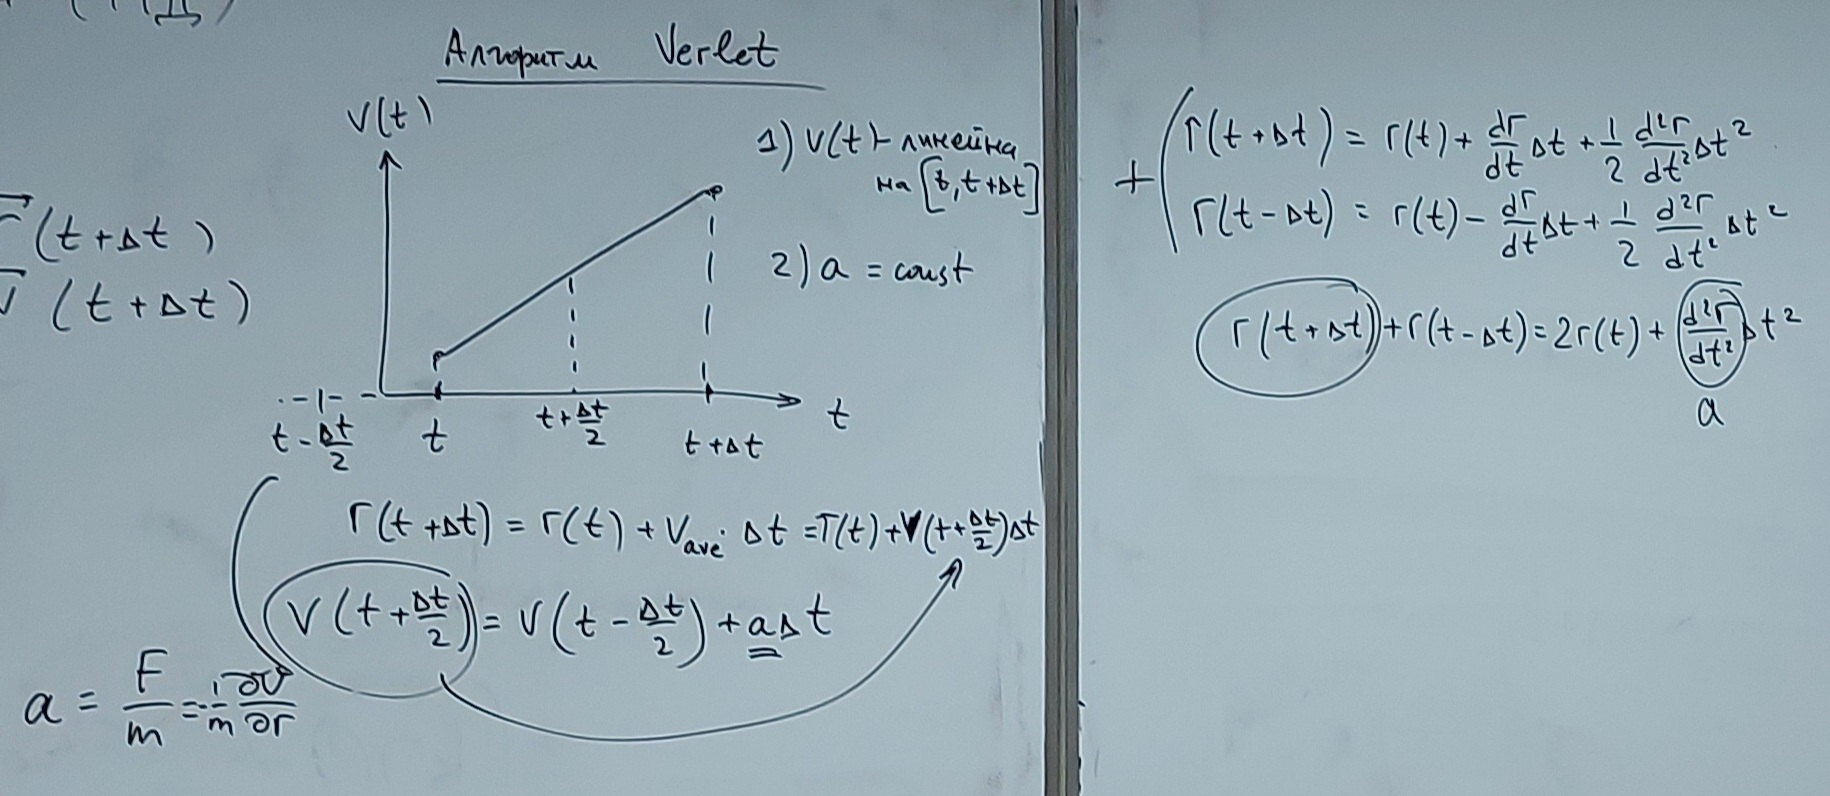 Алгоритм Verlet
V(t)
1) V(t) - линейна
на [t, t+Δt]
2) a = const
r⃗(t+Δt)
v⃗(t+Δt)
t - Δt/2
t
t + Δt/2
t+Δt
t
r(t+Δt) = r(t) + V_ave · Δt = r(t) + V(t+Δt/2)Δt
V(t+Δt/2) = V(t - Δt/2) + aΔt
a = F/m = -1/m ∂U/∂r
+ ( r(t+Δt) = r(t) + dr/dt Δt + 1/2 d²r/dt² Δt²
r(t-Δt) = r(t) - dr/dt Δt + 1/2 d²r/dt² Δt²
r(t+Δt) + r(t-Δt) = 2r(t) + d²r/dt² Δt²
a